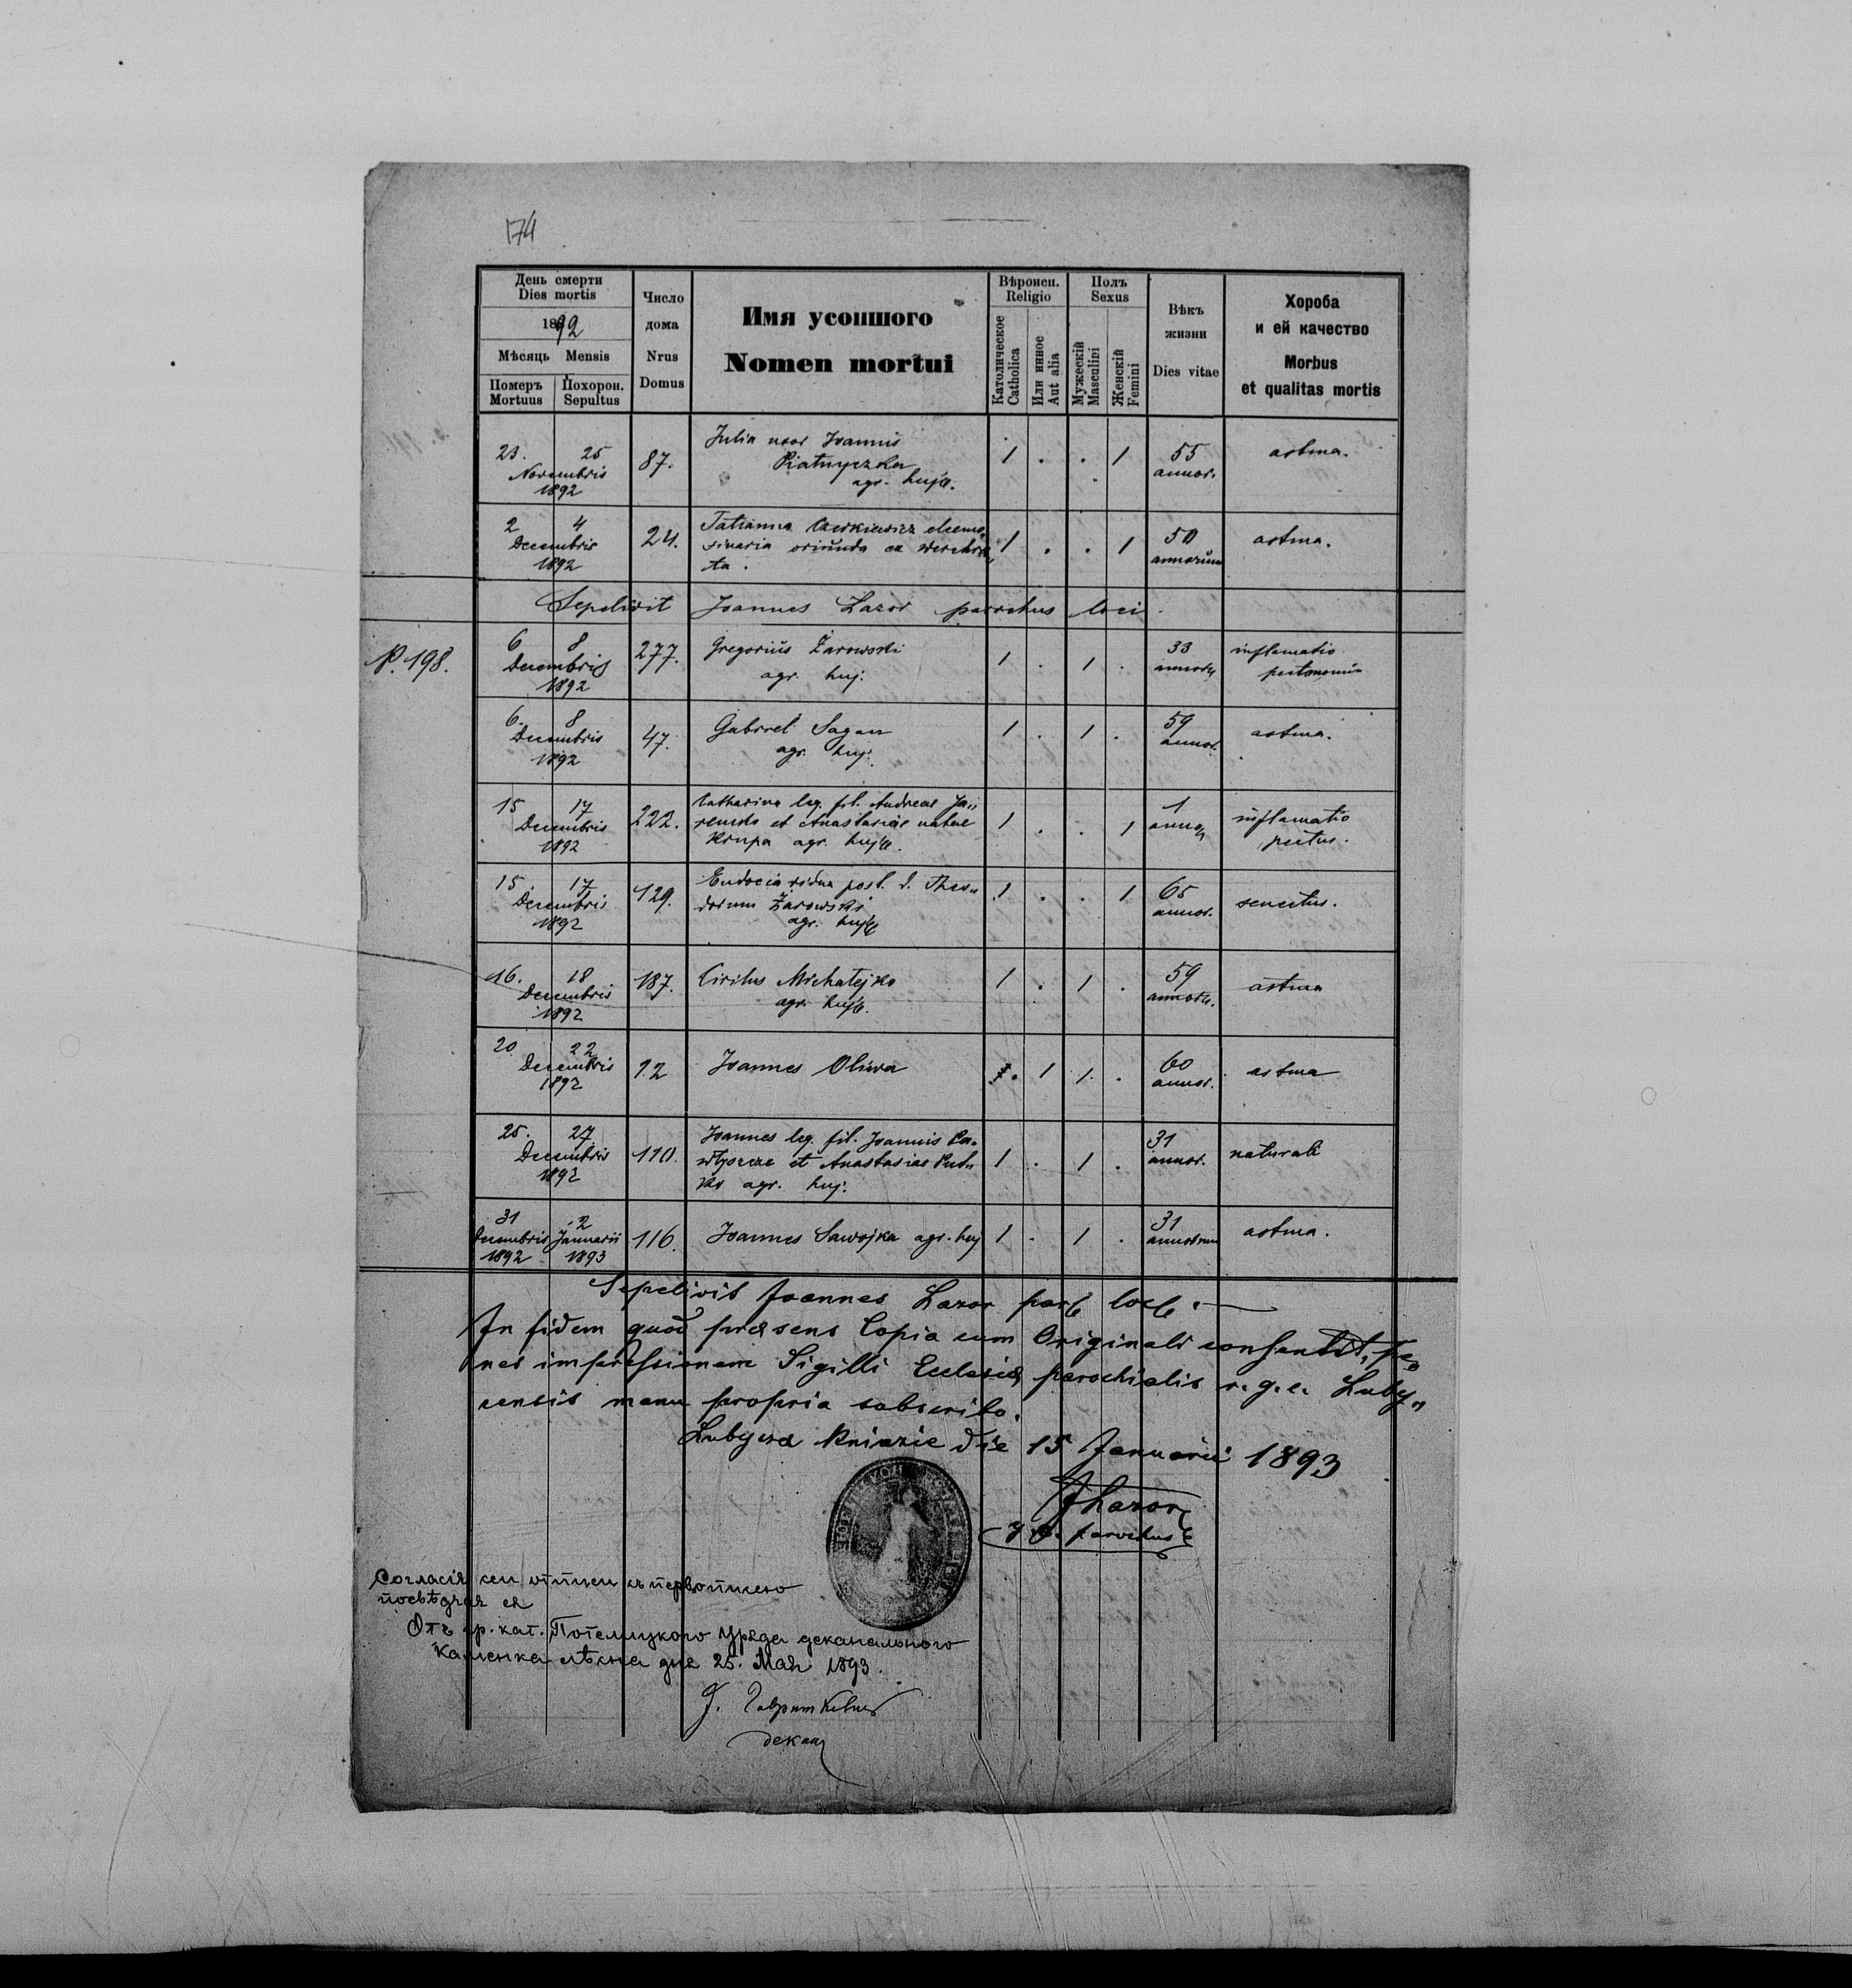 174
День смерти
Dies mortis
1892
Мѣсяць Mensis
Померъ Похорон.
Mortuus Sepultus
Число
дома
Nrus
Domus
Имя усопшого
Nomen mortui
Вѣроисп.
Religio
Католическое
Catholica
Или инное
Aut alia
Полъ
Sexus
Мужескій
Masculini
Женскій
Femini
Вѣкъ
жизни
Dies vitae
Хороба
и ей качество
Morbus
et qualitas mortis
23. 25
Novembris
1892
87.
Julia uxor Joannis
Piatnyczka
agr. huj.
1 . . 1
55
annor.
astma.
2 4
Decembris
1892
24.
Tatianna
sinaria oriunda ex
ta.
1 . . 1
50
annorum
astma.
Sepelivit Joannes Lazor parochus loci.
P. 198.
6 8
Decembris
1892
277.
Gregorius Żarowski
agr. huj.
1 . 1 .
33
annor.
inflamatio
6. 8
Decembris
1892
47.
Gabriel Sagan
agr. huj.
1 . 1 .
59
annor.
astma.
15 17
Decembris
1892
222.
Catharina leg. fil. Andreae Ja„
remko et Anastasiae natae
Krupa agr. huj.
1 . . 1
1
inflamatio
pectus.
15. 17
Decembris
1892
129.
Eudocia vidua post. d. Theo„
dorum Żarowski
agr. huj.
1 . . 1
65
annor.
senectus.
16. 18
Decembris
1892
187.
Cirilus Michalejko
agr. huj.
1 . 1 .
59
annor.
astma
20 22
Decembris
1892
92
Joannes Oliwa
. 1 1. .
60
annor.
astma
25. 27
Decembris
1892
110.
Joannes leg. fil. Joannis
et Anastasiae
agr. huj.
1 . 1 .
31
annor.
naturali
31 2
Decembris Januarii
1892 1893
116.
Joannes Sawojka agr. huj
1 . 1 .
31
annorum
astma.
Sepelivit Joannes Lazor par. loc.
In fidem quod praesens Copia cum Originali consentit, pe„
nes impressionem Sigilli Eclesiae parochialis r. g. c. Luby„
censis manu propria subscribo.
Lubycza Kniazie die 15 Januarii 1893
JLazor
parochus
Согласія сеи отписи съ первописею
посвѣдчая ся
Отъ гр. кат. Потелицкого Уряда деканального
Каменка лѣсна дня 25. Мая 1893.
декан